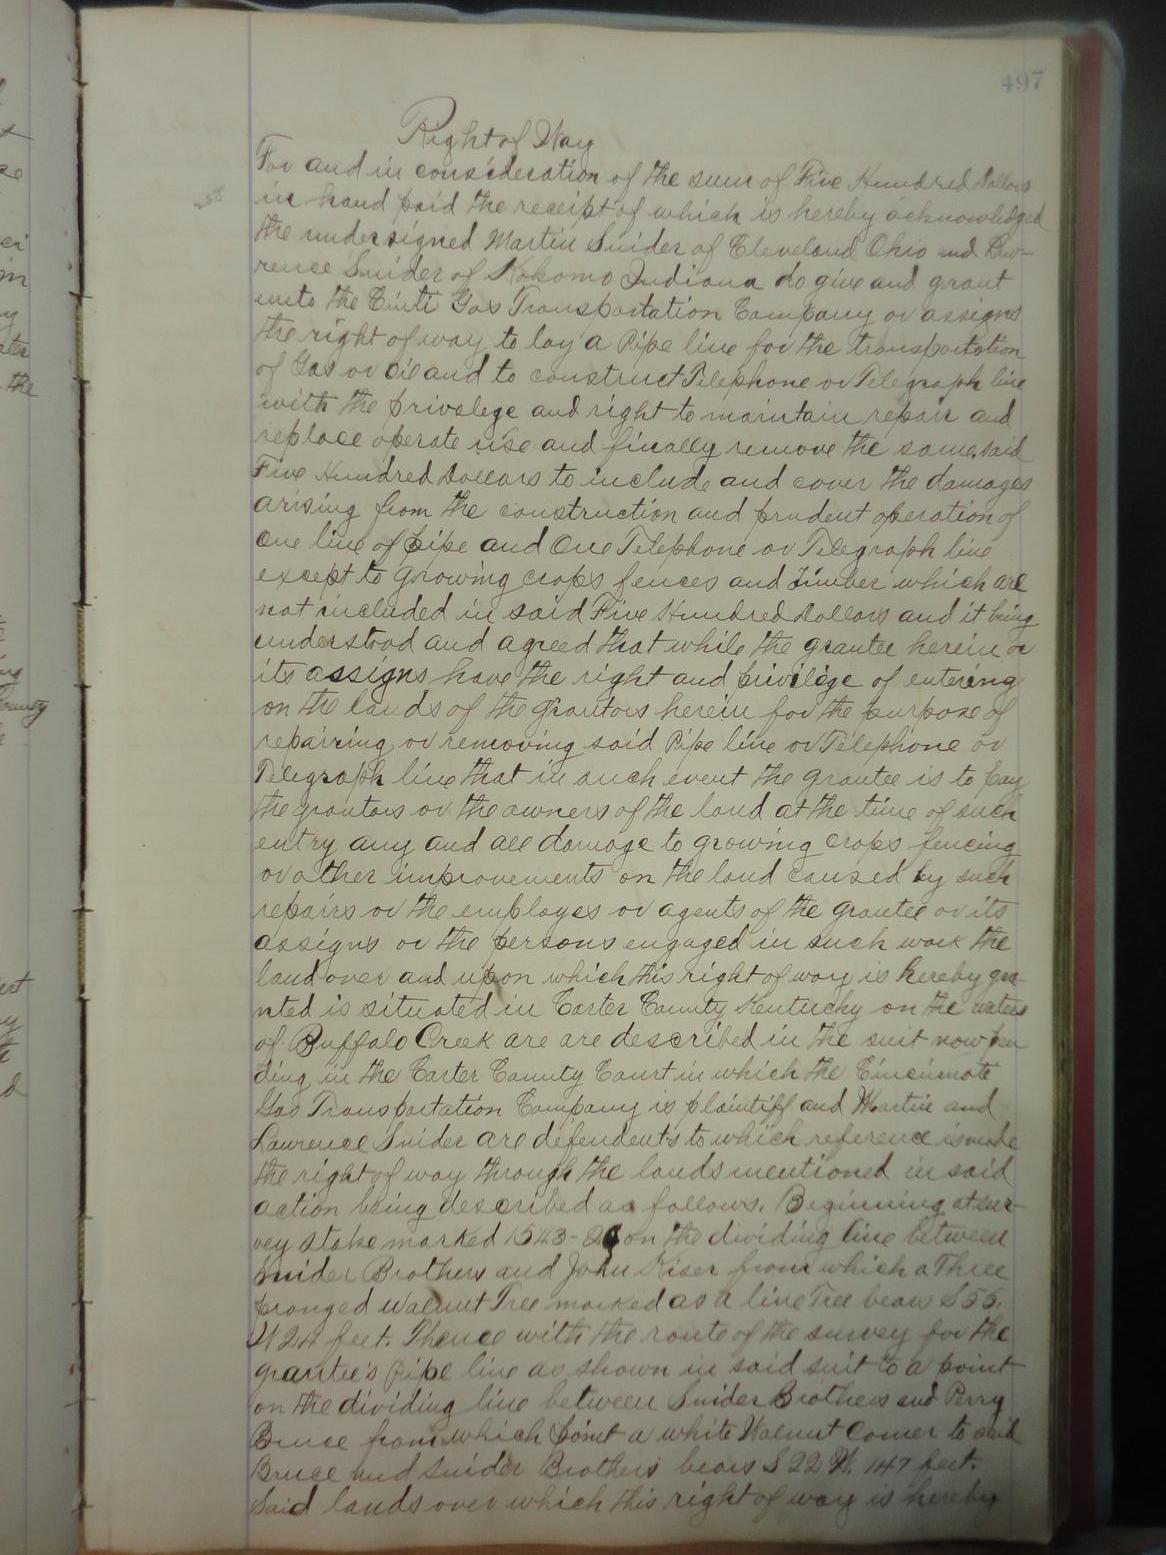 497
Right of Way
For and in consideration of the sum of Five Hundred Dollars
in hand paid the receipt of which is hereby acknowledged
the undersigned Martin Snider of Cleveland Ohio and Law-
rence Snider of Kokomo Indiana do give and grant
unto the Cinti Gas Transportation Company or assigns
the right of way to lay a Pipe line for the transportation
of Gas or Oil and to construct Telephone or Telegraph line
with the privelege and right to maintain repair and
replace operate use and finally remove the same, said
Five Hundred Dollars to include and cover the damages
arising from the construction and prudent operation of
One line of pipe and One Telephone or Telegraph line
except to growing crops fences and timber which are
not included in said Five Hundred Dollars and it being
understood and agreed that while the grantee herein or
its assigns have the right and privilege of entering
on the lands of the grantors herein for the purpose of
repairing or removing said Pipe line or Telephone or
Telegraph line that in such event the grantee is to pay
the grantors or the owners of the land at the time of such
entry any and all damage to growing crops fencing
or other improvements on the land caused by such
repairs or the employes or agents of the grantee or its
assigns or the persons engaged in such work the
land over and upon which this right of way is hereby gra-
nted is situated in Carter County Kentucky on the waters
of Buffalo Creek are are described in the suit now pen
ding in the Carter County Court in which the Cincinnate
Gas Transportation Company is plaintiff and Martin and
Lawrence Snider are defendents to which reference is made
the right of way through the lands mentioned in said
action being described as follows. Beginning at sur-
vey stake marked 1543- on the dividing line between
Snider Brothers and John Kiser from which a Three
pronged Walnut Tree marked as a line Tree bears S 55.
W 24 feet. Thence with the route of the survey for the
grantee's Pipe line as shown in said suit to a point
on the dividing line between Snider Brothers and Perry
Bruce from which point a white Walnut Corner to said
Bruce and Snider Brothers bears S 22 W. 147 feet.
Said lands over which this right of way is hereby